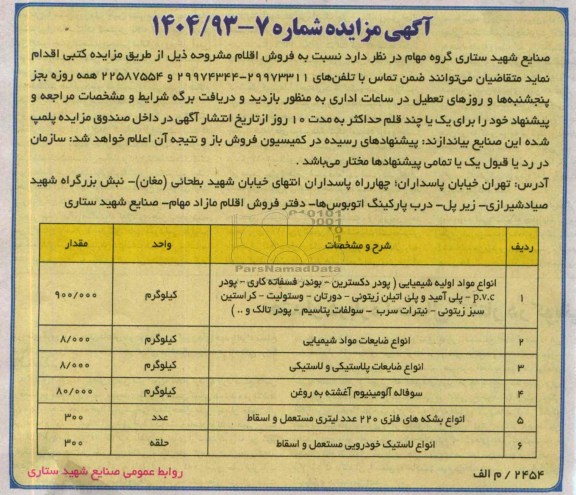 آگهی مزایده شماره ۷-۱۴۰۴/۹۳
صنایع شهید ستاری گروه مهام در نظر دارد نسبت به فروش اقلام مشروحه ذیل از طریق مزایده کتبی اقدام
نماید متقاضیان می‌توانند ضمن تماس با تلفن‌های ۲۹۹۷۳۳۱۱-۲۹۹۷۴۳۴۴ و ۲۲۵۸۷۵۵۴ همه روزه بجز
پنجشنبه‌ها و روزهای تعطیل در ساعات اداری به منظور بازدید و دریافت برگه شرایط و مشخصات مراجعه و
پیشنهاد خود را برای یک یا چند قلم حداکثر به مدت ۱۰ روز ازتاریخ انتشار آگهی در داخل صندوق مزایده پلمپ
شده این صنایع بیاندازند: پیشنهادهای رسیده در کمیسیون فروش باز و نتیجه آن اعلام خواهد شد: سازمان
در رد یا قبول یک یا تمامی پیشنهادها مختار می‌باشد .
آدرس: تهران خیابان پاسداران؛ چهارراه پاسداران انتهای خیابان شهید بطحائی (مغان)- نبش بزرگراه شهید
صیادشیرازی- زیر پل- درب پارکینگ اتوبوس‌ها- دفتر فروش اقلام مازاد مهام- صنایع شهید ستاری
ParsNamadData
ردیف شرح و مشخصات واحد مقدار
۱ انواع مواد اولیه شیمیایی ( پودر دکسترین - بوندر فسفاته کاری - پودر
p.v.c - پلی آمید و پلی اتیلن زیتونی - دورتان - وستولیت - کراستین
سبز زیتونی - نیترات سرب - سولفات پتاسیم - پودر تالک و .. ) کیلوگرم ۹۰۰/۰۰۰
۲ انواع ضایعات مواد شیمیایی کیلوگرم ۸/۰۰۰
۳ انواع ضایعات پلاستیکی و لاستیکی کیلوگرم ۸/۰۰۰
۴ سوفاله آلومینیوم آغشته به روغن کیلوگرم ۸۰/۰۰۰
۵ انواع بشکه های فلزی ۲۲۰ عدد لیتری مستعمل و اسقاط عدد ۳۰۰
۶ انواع لاستیک خودرویی مستعمل و اسقاط حلقه ۳۰۰
۲۴۵۴ / م الف
روابط عمومی صنایع شهید ستاری